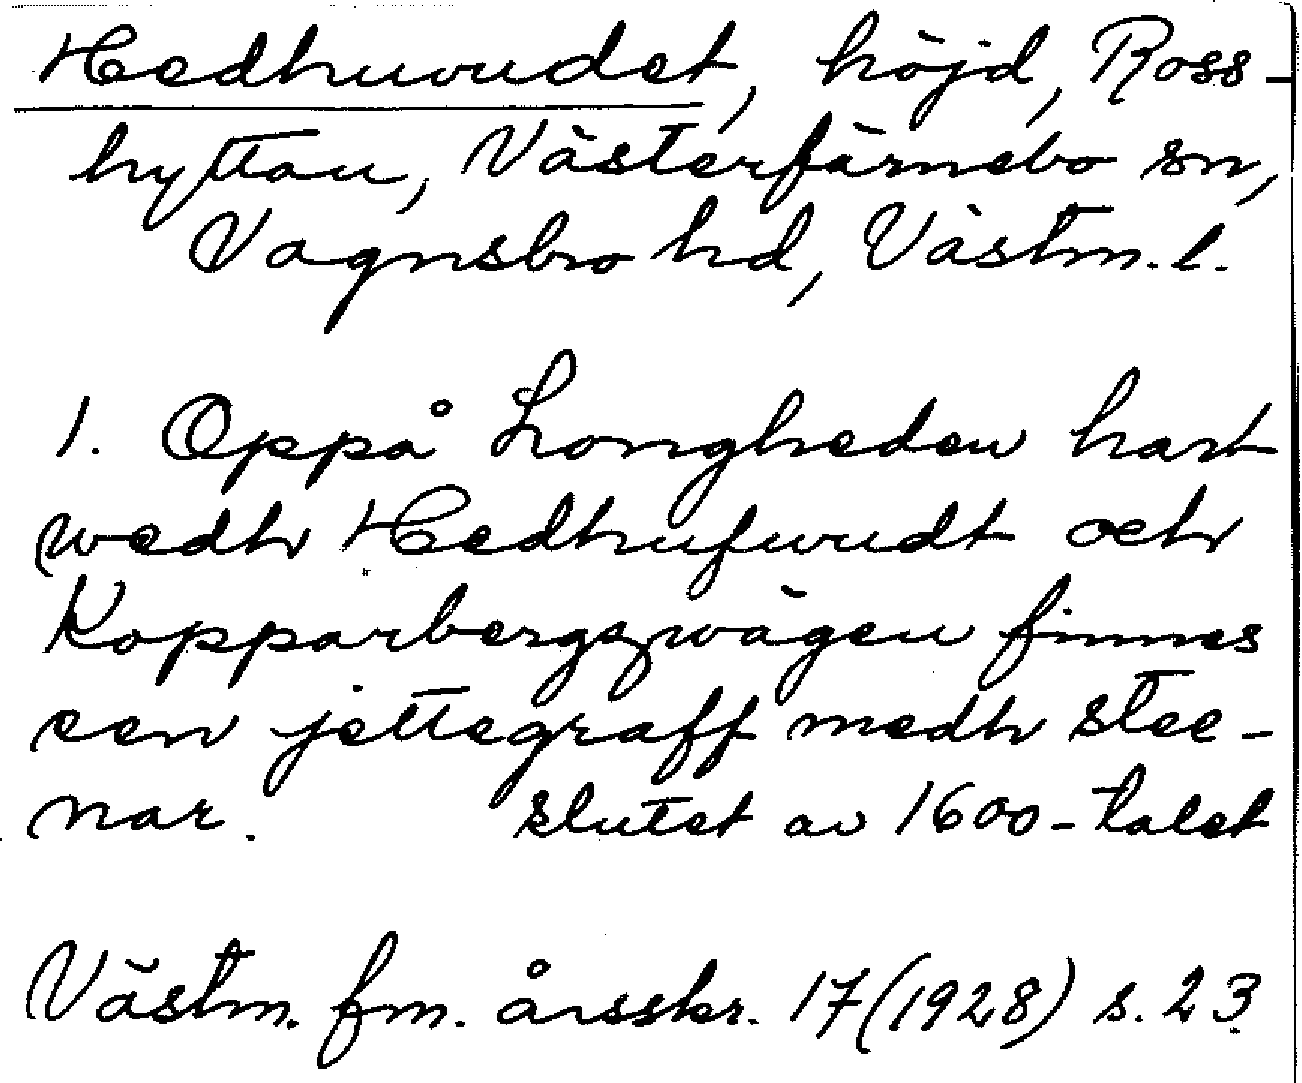 Hedhuvudet, höjd, Ross-
hyttan, Västerfärnebo sn,
Vagnsbro hd, Västm. l.
1. Oppå Longheden hart
wedh Hedhufwudt och
Kopparbergzwägen finnes
een jettegraff medh stee-
nar. slutet av 1600-talet
Västm. fm. årsskr. 17 (1928) s. 23